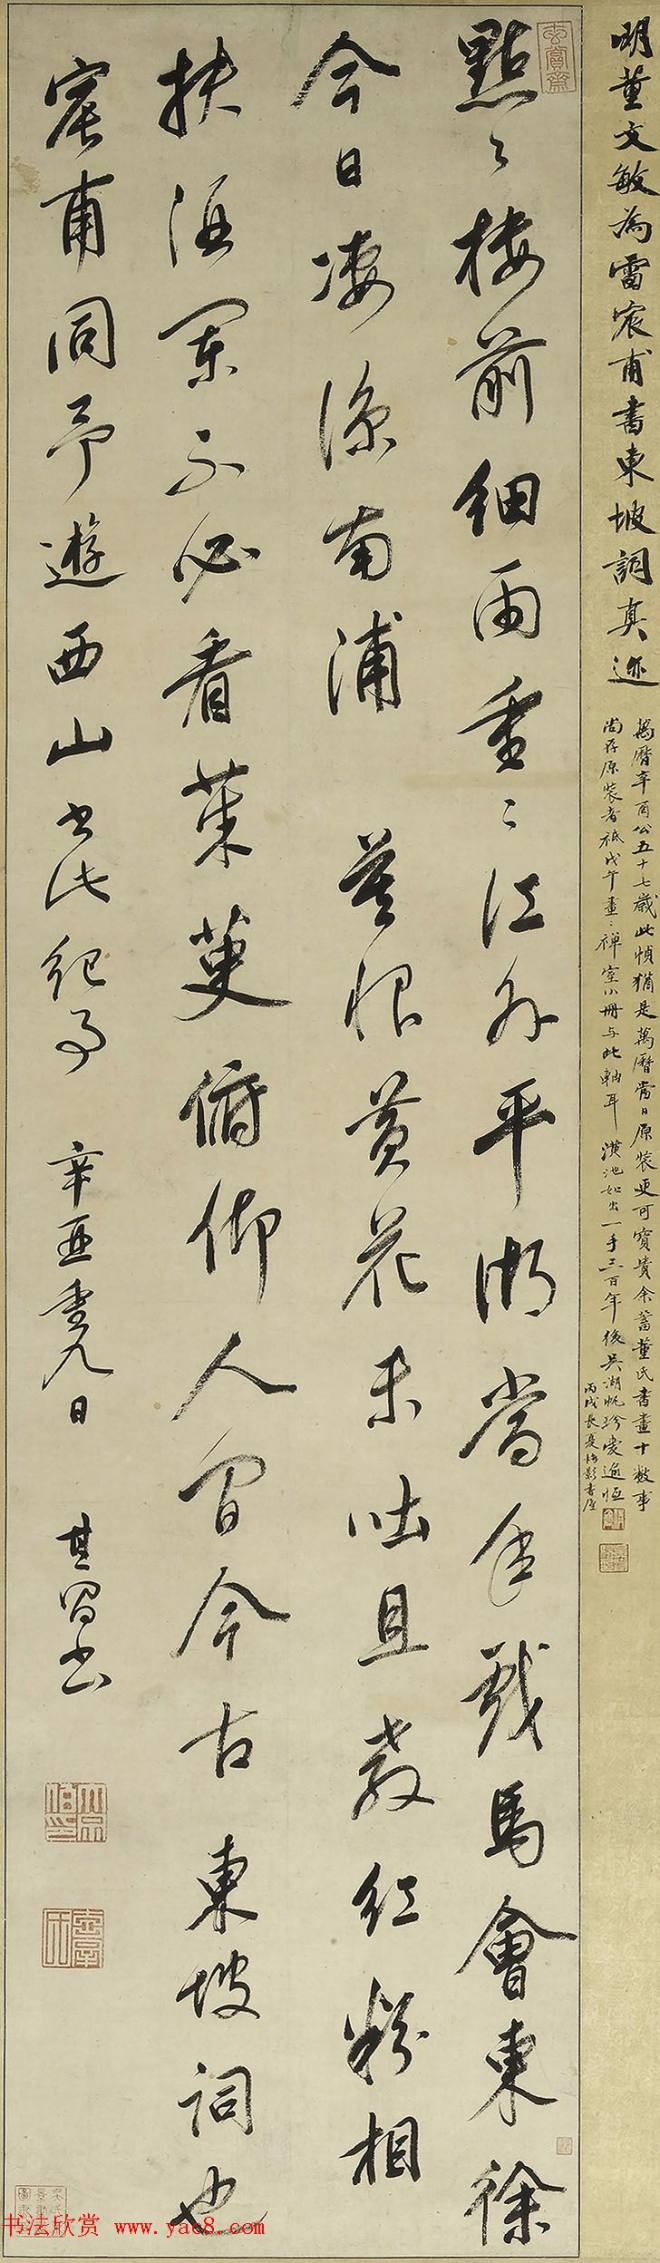 明董文敏為雷宸甫書東坡詞真迹
萬曆辛酉公五十七歲此幀猶是萬曆當日原裝更可寶貴余蓄董氏書畫十數事
尚存原裝者祗戊午畫〻禪室小冊与此軸耳 潢池如出一手三百年後吳湖帆珍愛逾恒
丙戌長夏梅影書屋
玄賞齋
點〻樓前細雨重〻江外平湖當年戲馬會東徐
今日淒涼南浦 莫恨黃花未吐且教紅粉相
扶酒闌不必看茱萸俯仰人間今古東坡詞也
宸甫同予遊西山書此紀事 辛酉重九日 其昌書
书法欣赏 www.yac8.com